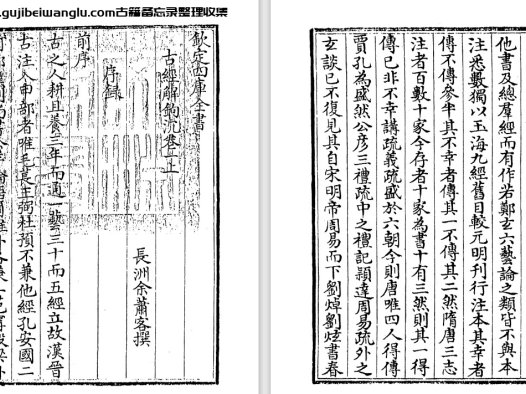 .gujibeiwanglu.com古籍备忘录整理收集
欽定四庫全書
古經解鈎沉卷一上
長洲余蕭客撰
序錄
前序
古之人耕且養三年而通一藝三十而五經立故漢晉
古注入甲部者唯毛萇王弼杜預不兼他經孔安國二
他書及總羣經而有作若鄭玄六藝論之類皆不與本
注悉數獨以玉海九經舊目較元明刊行注本其幸者
傳不傳參半其不幸者傳其一不傳其二然隋唐三志
注者百數十家今存者十家為書十有三然則其一得
傳已非不幸講疏義疏盛於六朝今則唐唯四人得傳
賈孔為盛然公彥三禮疏中之禮記穎達周易疏外之
玄談已不復見其自宋明帝周易而下劉焯劉炫書春